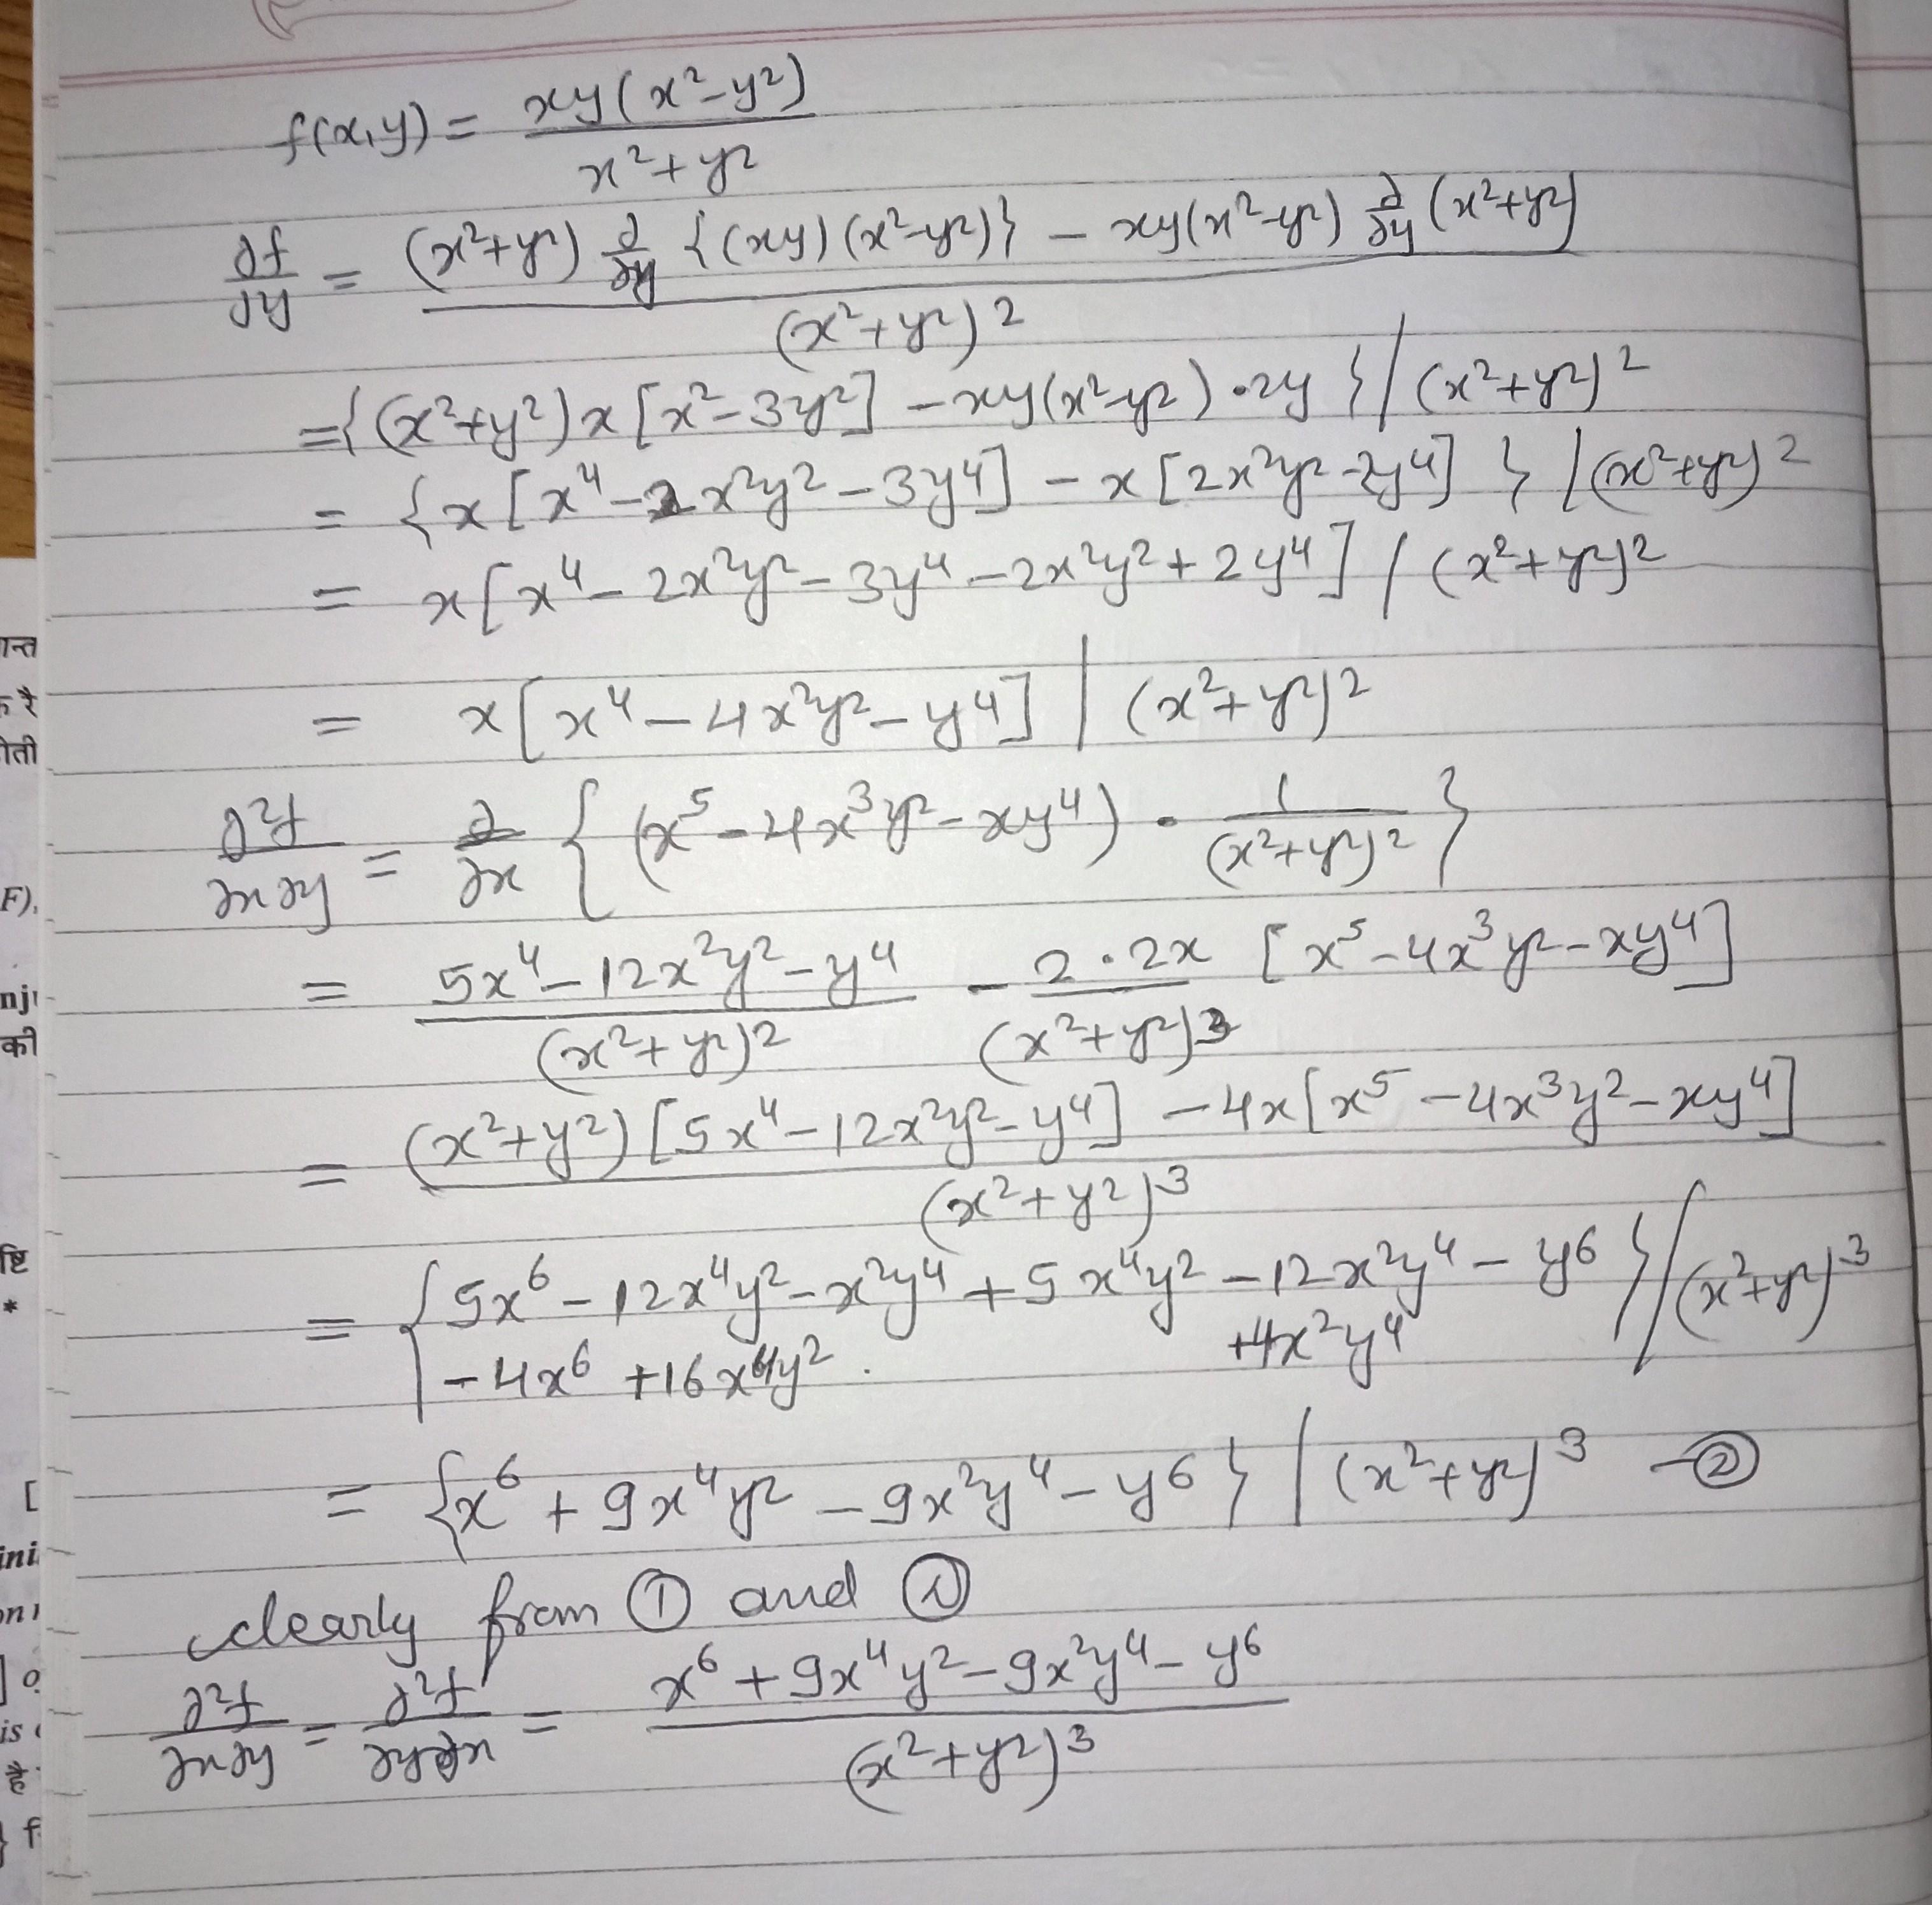 f(x,y) = xy(x²-y²) / x²+y²
∂f/∂y = (x²+y²) ∂/∂y {(xy)(x²-y²)} - xy(x²-y²) ∂/∂y (x²+y²) / (x²+y²)²
={(x²+y²)x[x²-3y²] - xy(x²-y²)·2y} / (x²+y²)²
= {x[x⁴-2x²y²-3y⁴] - x[2x²y²-2y⁴]} / (x²+y²)²
= x[x⁴-2x²y²-3y⁴-2x²y²+2y⁴] / (x²+y²)²
= x[x⁴-4x²y²-y⁴] / (x²+y²)²
∂²f/∂x∂y = ∂/∂x {(x⁵-4x³y²-xy⁴)·1/(x²+y²)²}
= 5x⁴-12x²y²-y⁴ / (x²+y²)² - 2·2x / (x²+y²)³ [x⁵-4x³y²-xy⁴]
= (x²+y²)[5x⁴-12x²y²-y⁴] - 4x[x⁵-4x³y²-xy⁴] / (x²+y²)³
= {5x⁶-12x⁴y²-x²y⁴+5x⁴y²-12x²y⁴-y⁶
-4x⁶+16x⁴y² +4x²y⁴} / (x²+y²)³
= {x⁶+9x⁴y²-9x²y⁴-y⁶} / (x²+y²)³ -②
clearly from ① and ②
∂²f/∂x∂y = ∂²f/∂y∂x = x⁶+9x⁴y²-9x²y⁴-y⁶ / (x²+y²)³